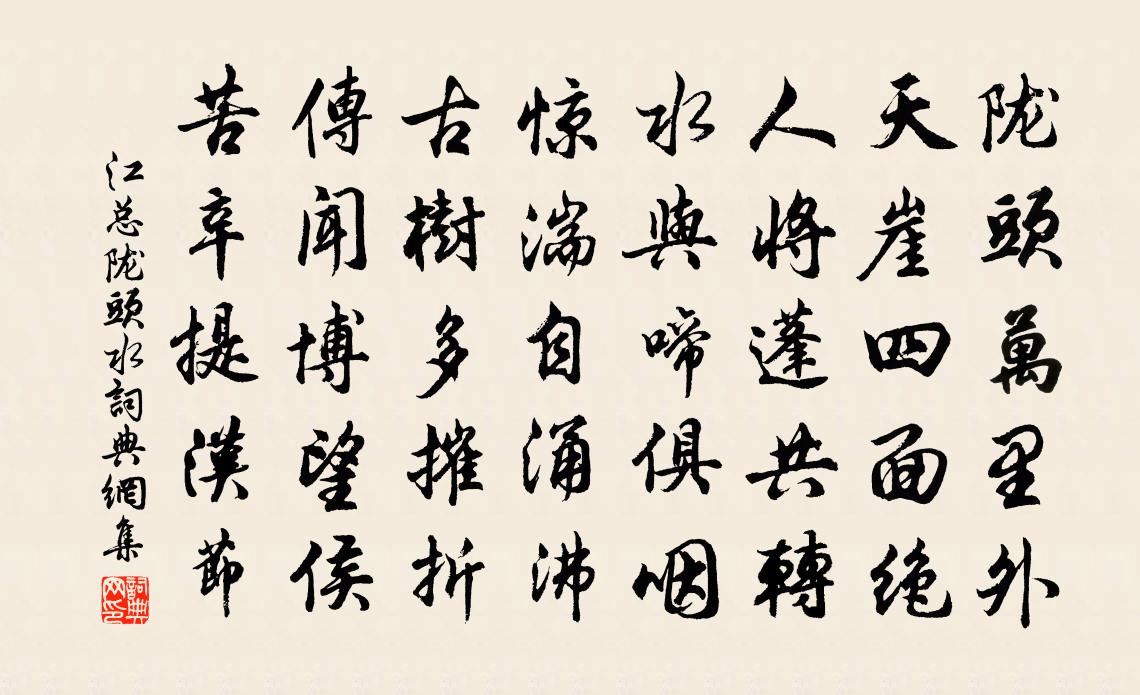 陇頭萬里外
天崖四面绝
人將蓬共轉
水與啼俱咽
惊湍自涌沸
古樹多摧折
傳聞博望侯
苦辛提漢節
江总陇頭水詞典網集
詞典網印